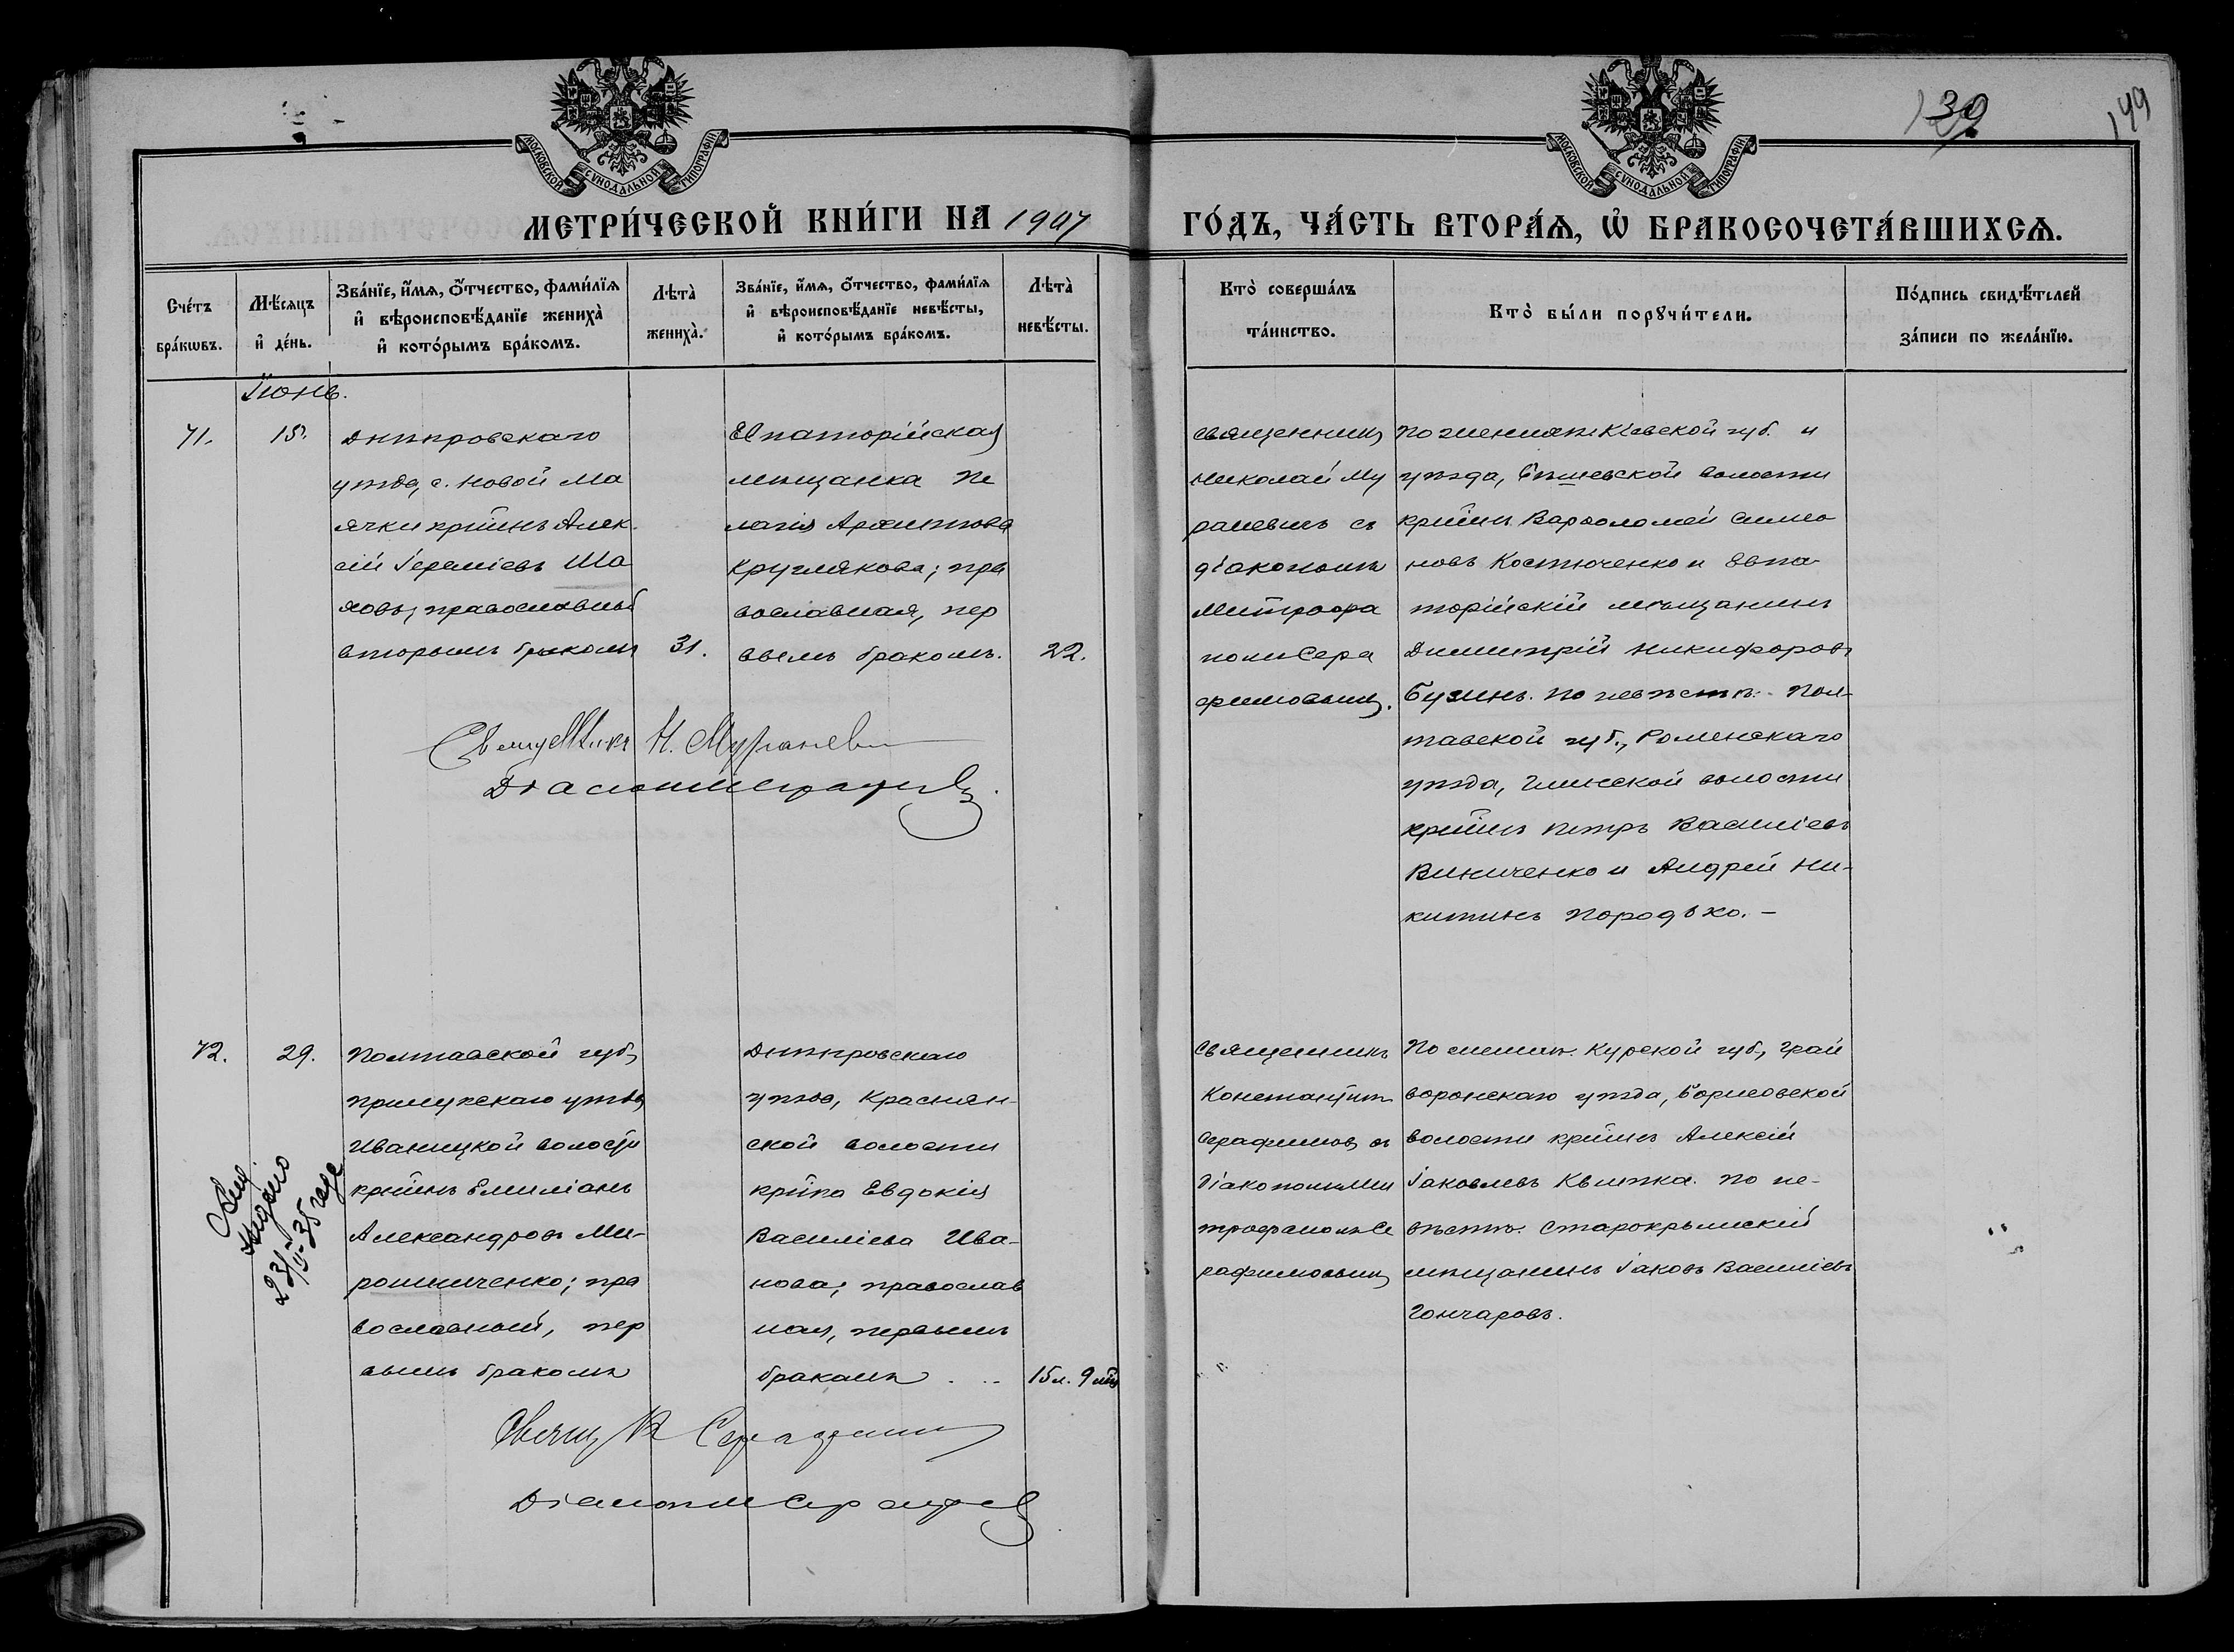 МОСКОВСКОЙ СѴНОДАЛЬНОЙ ТИПОГРАФІИ
МОСКОВСКОЙ СѴНОДАЛЬНОЙ ТИПОГРАФІИ
139
149
МЕТРИ́ЧЕСКОЙ КНИ́ГИ НА 1907
ГО́ДЪ, ЧА́СТЬ ВТОРА́Ѧ, Ѡ҆ БРАКОСОЧЕТА́ВШИХСѦ.
Сче́тъ
бра́кѡвъ.
Мѣ́сяцъ
и҆ де́нь.
Зва́нїе, и҆́мѧ, ѻ҆́тчество, фами́лїѧ
и҆ вѣроисповѣ́данїе жениха̀
и҆ кото́рымъ бра́комъ.
Лѣта̀
жениха̀.
Зва́нїе, и҆́мѧ, ѻ҆́тчество, фами́лїѧ
и҆ вѣроисповѣ́данїе невѣ́сты,
и҆ кото́рымъ бра́комъ.
Лѣта̀
невѣ́сты.
Кто̀ соверша́лъ
та́инство.
Кто̀ бы́ли порꙋчи́тели.
По́дпись свидѣ́телей
за́писи по жела́нїю.
Іюнь.
71.
15.
Днѣпровскаго
уѣзда, с. Новой Ма
ячки кр̃инъ Алек
сій Іереміевъ Ша
ховъ, православный
вторымъ бракомъ
31.
Евпаторійская
мѣщанка Пе
лагія Архиппова
Круглякова; пра
вославная, пер
вымъ бракомъ.
22.
Священникъ
Николай Му
раневичъ съ
діакономъ
Митрофа
номъ Сера
фимовымъ.
По женихѣ: Кіевской губ. и
уѣзда, Бышевской волости
кр̃инъ Варѳоломей Симео
новъ Костюченко и Евпа
торійскій мѣщанинъ
Димитрій Никифоровъ
Бузинъ. По невѣстѣ: Пол-
тавской губ., Роменскаго
уѣзда, Глинской волости
кр̃инъ Петръ Василіевъ
Виниченко и Андрей Ни-
китинъ Породько. –
Священникъ Н. Мураневич
Діаконъ М Серафимовъ
72.
29.
Полтавской губ.,
Прилукскаго уѣзда
Иваницкой волости
кр̃инъ Емиліанъ
Александровъ Ми-
рошниченко; пра
вославный, пер
вымъ бракомъ
Днѣпровскаго
уѣзда, Краснян-
ской волости
кр̃нка Евдокія
Василіева Ива-
нова; православ
ная, первымъ
бракомъ . ..
15 л. 9 мц
Священникъ
Константинъ
Серафимовъ съ
діакономъ Ми
трофаномъ Се
рафимовымъ
По женихѣ: Курской губ., Грай
воронскаго уѣзда, Борисовской
волости кр̃инъ Алексій
Іаковлевъ Квитка. По не-
вѣстѣ: Старокрымскій
мѣщанинъ Іаковъ Василіевъ
Гончаровъ.
выдано
23/II-35 годе
Свящ К Серафимов
Діаконъ М Серафимовъ